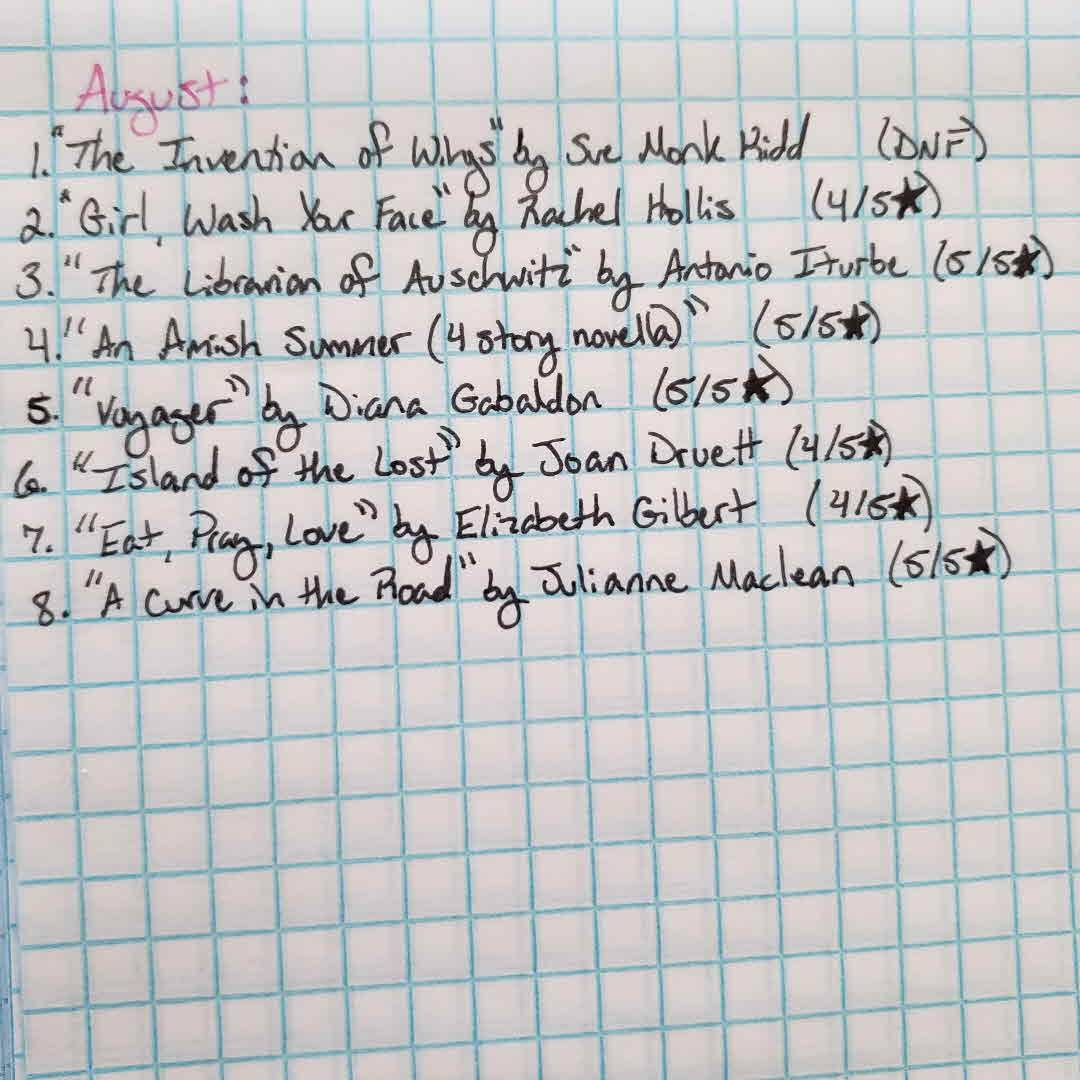 August:
1. "The Invention of Wings" by Sue Monk Kidd (DNF)
2. "Girl, Wash Your Face" by Rachel Hollis (4/5★)
3. "The Librarian of Auschwitz" by Antonio Iturbe (5/5★)
4. "An Amish Summer (4 story novella)" (5/5★)
5. "Voyager" by Diana Gabaldon (5/5★)
6. "Island of the Lost" by Joan Druett (4/5★)
7. "Eat, Pray, Love" by Elizabeth Gilbert (4/5★)
8. "A Curve in the Road" by Julianne Maclean (5/5★)